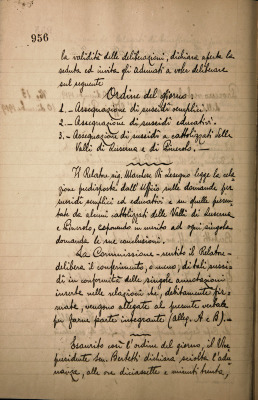 956
la validità delle deliberazioni, dichiara aperta la
seduta ed invita gli adunati a voler deliberare
sul seguente
Ordine del giorno:
1.- Assegnazione di sussidi semplici.
2.- Assegnazione di sussidi educativi.
3.- Assegnazione di sussidi a cattolizzati delle
Valli di Luserna e di Pinerolo.
Il Relatore sig. Mastore Pi legge le rela
zioni predisposte dall'Ufficio sulle domande per
sussidi semplici ed educativi e su quelle presen
tate da alcuni cattolizzati delle Valli di Luserna
e Pinerolo, esponendo in merito ad ogni singola
domanda le sue conclusioni.
La Commissione - sentito il Relatore -
delibera il conferimento, o meno, di tali sussi
di in conformità delle singole annotazioni
inserte nelle relazioni che, debitamente fir
mate, vengono allegate al presente verbale
per farne parte integrante (alleg. A e B).-
Esaurito così l'ordine del giorno, il Vice
presidente Sen. Bertetti dichiara sciolta l'adu
nanza, alle ore diciassette e minuti trenta,